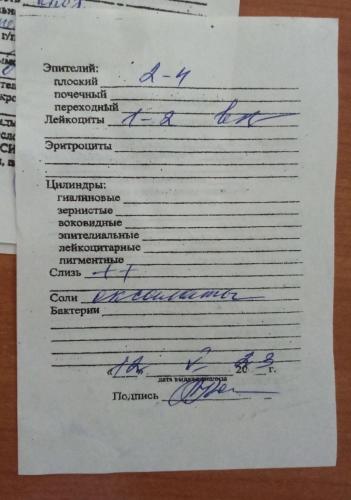 Эпителий:
плоский 2-4
почечный
переходный
Лейкоциты 1-2 в п/з
Эритроциты
Цилиндры:
гиалиновые
зернистые
восковидные
эпителиальные
лейкоцитарные
пигментные
Слизь ++
Соли оксалаты
Бактерии
"12" V 2023 г.
дата выдачи анализа
Подпись